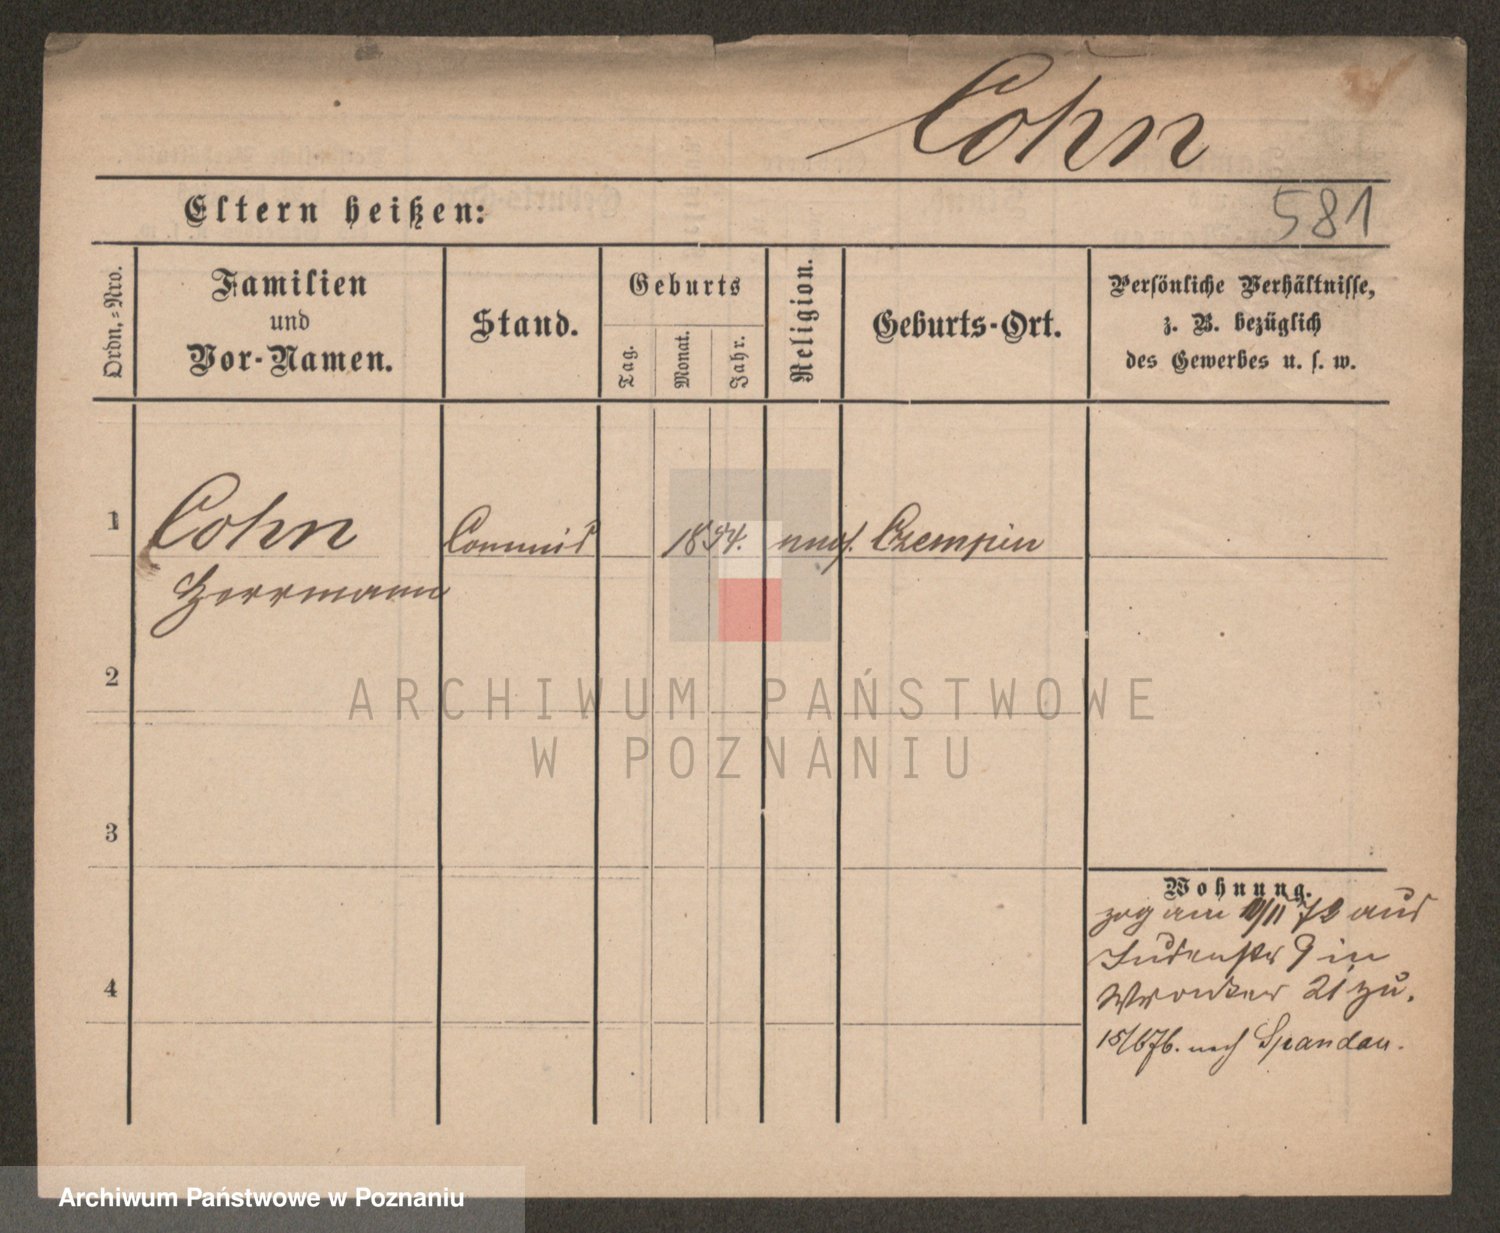 Cohn
Eltern heißen:
581
Ordn.-Nro.
Familien
und
Vor-Namen.
Stand.
Geburts
Tag.
Monat.
Jahr.
Religion.
Geburts-Ort.
Persönliche Verhältnisse,
z. B. bezüglich
des Gewerbes u. s. w.
1
Cohn
Commis
1854.
mos.
Czempin
Herrmann
2
ARCHIWUM PAŃSTWOWE
W POZNANIU
3
Wohnung.
zog am /11 73 aus
Judenstr 9 in
Wronker 21 zu.
4
15/6 76. nach Spandau.
Archiwum Państwowe w Poznaniu